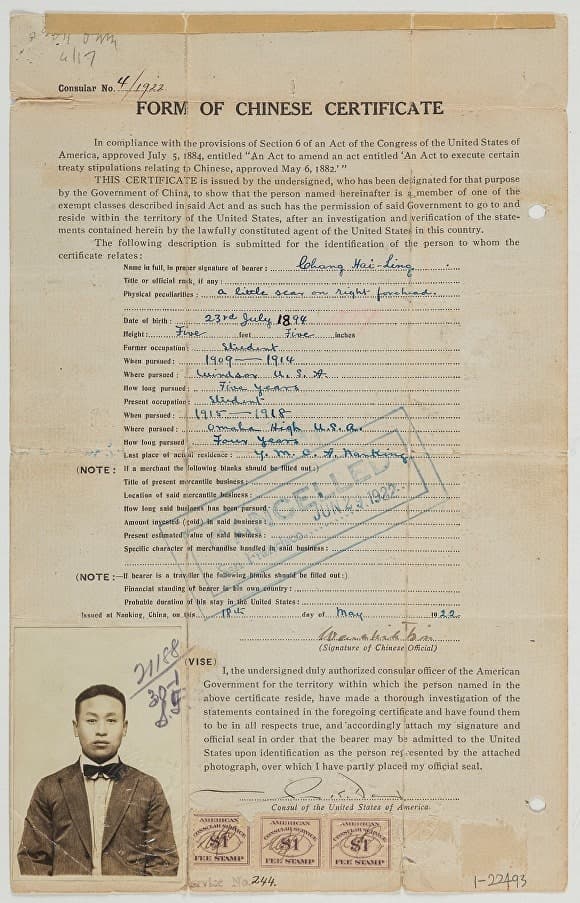 4/17
Consular No. 4/1922
FORM OF CHINESE CERTIFICATE
In compliance with the provisions of Section 6 of an Act of the Congress of the United States of
America, approved July 5, 1884, entitled "An Act to amend an act entitled 'An Act to execute certain
treaty stipulations relating to Chinese, approved May 6, 1882.'"
THIS CERTIFICATE is issued by the undersigned, who has been designated for that purpose
by the Government of China, to show that the person named hereinafter is a member of one of the
exempt classes described in said Act and as such has the permission of said Government to go to and
reside within the territory of the United States, after an investigation and verification of the state-
ments contained herein by the lawfully constituted agent of the United States in this country.
The following description is submitted for the identification of the person to whom the
certificate relates:
Name in full, in proper signature of bearer: Chang Hai-Ling
Title or official rank, if any
Physical peculiarities: a little scar on right forehead.
Date of birth: 23rd July 1894
Height: Five feet Five inches
Former occupation: Student
When pursued: 1909—1914
Where pursued: Windsor U.S.A.
How long pursued: Five Years
Present occupation: Student
When pursued: 1915—1918
Where pursued: Omaha High U.S.A.
How long pursued: Four Years
Last place of actual residence: Y.M.C.A. Nanking
(NOTE: If a merchant the following blanks should be filled out:)
Title of present mercantile business:
Location of said mercantile business:
How long said business has been pursued:
Amount invested (gold) in said business:
Present estimated value of said business:
Specific character of merchandise handled in said business:
CANCELLED
JUN 1922
San Francisco
(NOTE:—If bearer is a traveller the following blanks should be filled out:)
Financial standing of bearer in his own country:
Probable duration of his stay in the United States:
Issued at Nanking, China, on this 18th day of May 1922
(Signature of Chinese Official)
(VISE)
I, the undersigned duly authorized consular officer of the American
Government for the territory within which the person named in the
above certificate reside, have made a thorough investigation of the
statements contained in the foregoing certificate and have found them
to be in all respects true, and accordingly attach my signature and
official seal in order that the bearer may be admitted to the United
States upon identification as the person represented by the attached
photograph, over which I have partly placed my official seal.
Consul of the United States of America.
21188
AMERICAN CONSULAR SERVICE $1 FEE STAMP
AMERICAN CONSULAR SERVICE $1 FEE STAMP
AMERICAN CONSULAR SERVICE $1 FEE STAMP
Service No. 244.
1-22493